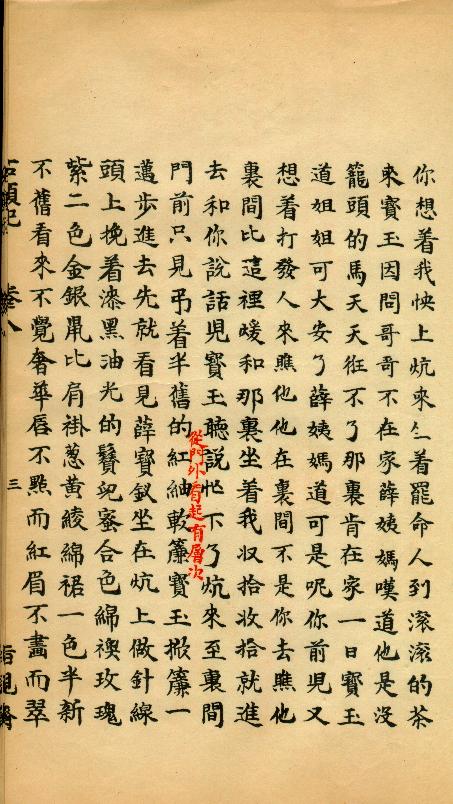 你想着我快上炕來坐着罷命人到滚滚的茶
來寳玉因問哥哥不在家薛姨媽嘆道他是没
籠頭的馬天天徃不了那裏肯在家一日寳玉
道姐姐可大安了薛姨媽道可是呢你前児又
想着打發人來瞧他他在裏間不是你去瞧他
裏間比這裡暖和那裏坐着我収拾收拾就進
去和你説話児寳玉聴説忙下了炕來至裏間
門前只見吊着半舊的紅紬軟簾寳玉掀簾一
從門外看起有層次
邁歩進去先就看見薛寳釵坐在炕上做針線
頭上挽着漆黑油光的鬢児蜜合色綿襖玫瑰
紫二色金銀鼠比肩褂葱黄綾綿裙一色半新
不舊看來不覺奢華唇不㸃而紅眉不畫而翠
石頭記 卷八 三